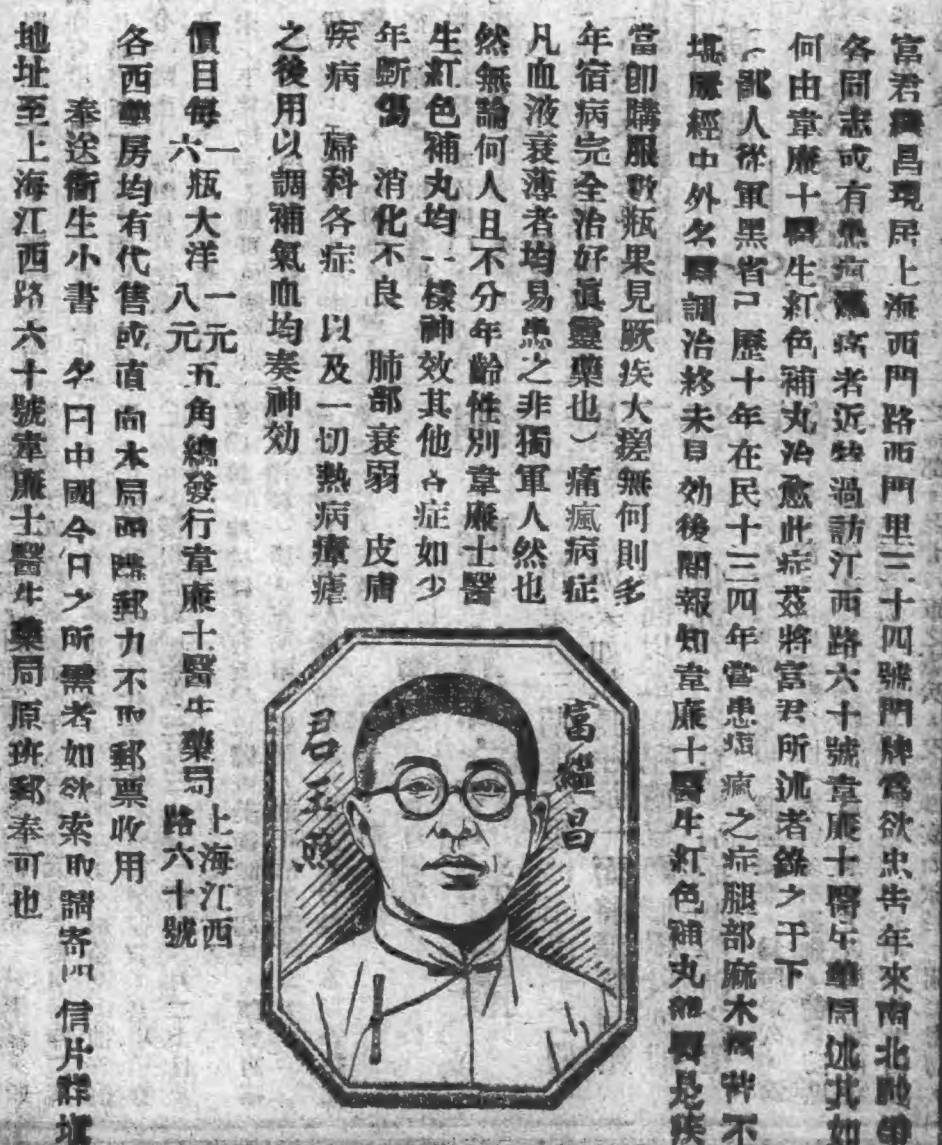 富君繼昌現居上海西門路西門里三十四號門牌爲欲忠告年來南北戰
各同志或有患瘋濕病者近特過訪江西路六十號韋廉士醫生藥局述其如
何由韋廉士醫生紅色補丸治愈此症茲將富君所述者錄之于下
(鄙人從軍黑省已歷十年在民十三四年嘗患瘋之症腿部麻木不
堪歷經中外名醫調治終未見効後閱報知韋廉士醫生紅色補丸能是疾
當卽購服數瓶果見厥疾大瘥無何則多
年宿病完全治好眞靈藥也)痛瘋病症
凡血液衰薄者均易患之非獨軍人然也
然無論何人且不分年齡性別韋廉士醫
生紅色補丸均一樣神效其他各症如少
年斷傷 消化不良 肺部衰弱 皮膚
疾病 婦科各症 以及一切熱病瘴瘧
之後用以調補氣血均奏神効
富繼昌
君玉照
價目每一瓶大洋一元五角
六瓶大洋八元
總發行韋廉士醫生藥局上海江西
路六十號
各西藥房均有代售或直向本局函購郵力不加郵票收用
奉送衛生小書 名曰中國今日之所需者如欲索取請寄明信片詳塡
地址至上海江西路六十號韋廉士醫生藥局原班郵奉可也